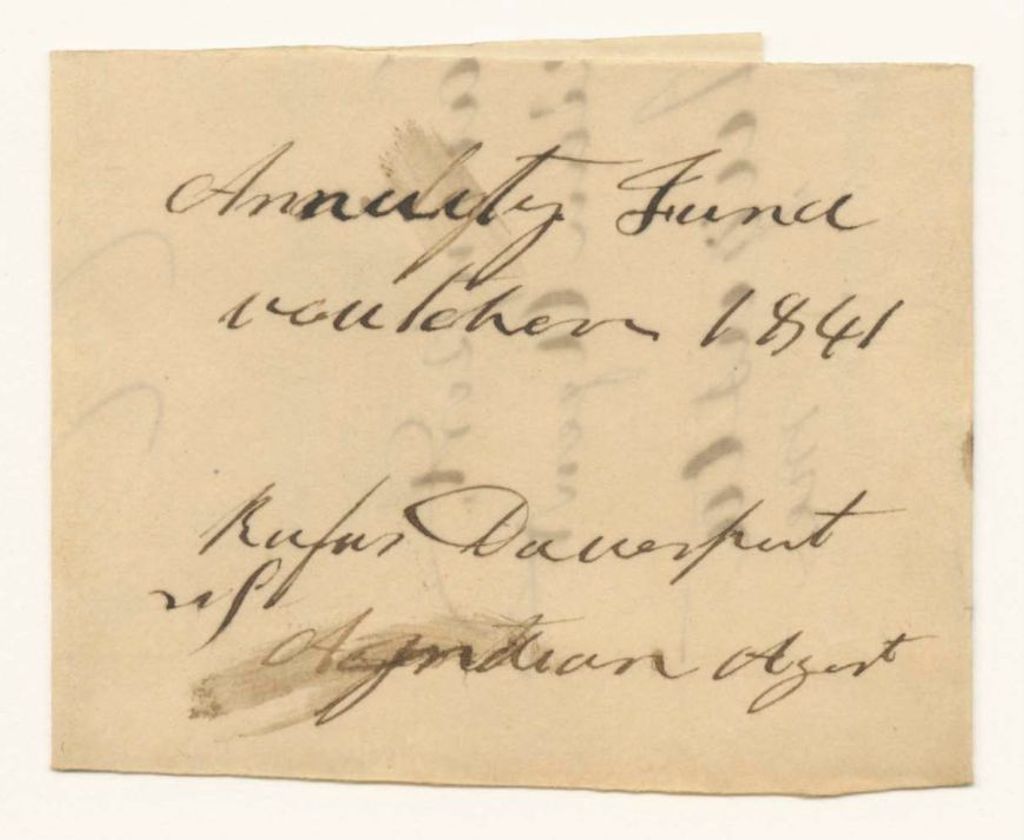 Annuity Fund
voutcher 1841
Rufus Davenport
Indian Agent